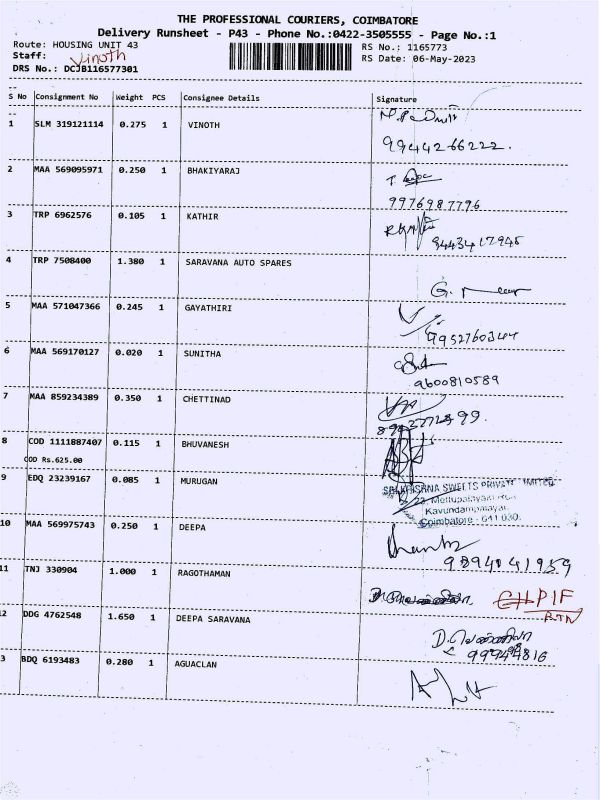 THE PROFESSIONAL COURIERS, COIMBATORE
Delivery Runsheet - P43 - Phone No.:0422-3505555 - Page No.:1
Route: HOUSING UNIT 43 RS No.: 1165773
Staff: Vinoth RS Date: 06-May-2023
DRS No.: DCJB116577301
--
S No Consignment No Weight PCS Consignee Details Signature
--
1 SLM 319121114 0.275 1 VINOTH
9944266222.
2 MAA 569095971 0.250 1 BHAKIYARAJ
9976987796
3 TRP 6962576 0.105 1 KATHIR
9443417945
4 TRP 7508400 1.380 1 SARAVANA AUTO SPARES
G.
5 MAA 571047366 0.245 1 GAYATHIRI
6 MAA 569170127 0.020 1 SUNITHA
9600810589
7 MAA 859234389 0.350 1 CHETTINAD
8 COD 1111887407 0.115 1 BHUVANESH
COD Rs.625.00
9 EDQ 23239167 0.085 1 MURUGAN
SRI KRISHNA SWEETS PRIVATE LIMITED
23, Mettupalayam
Kavundampalayam
Coimbatore - 641 030.
10 MAA 569975743 0.250 1 DEEPA
9894041959
11 TNJ 330904 1.000 1 RAGOTHAMAN
RTN
12 DDG 4762548 1.650 1 DEEPA SARAVANA
D.வெண்ணிலா
3 BDQ 6193483 0.280 1 AGUACLAN